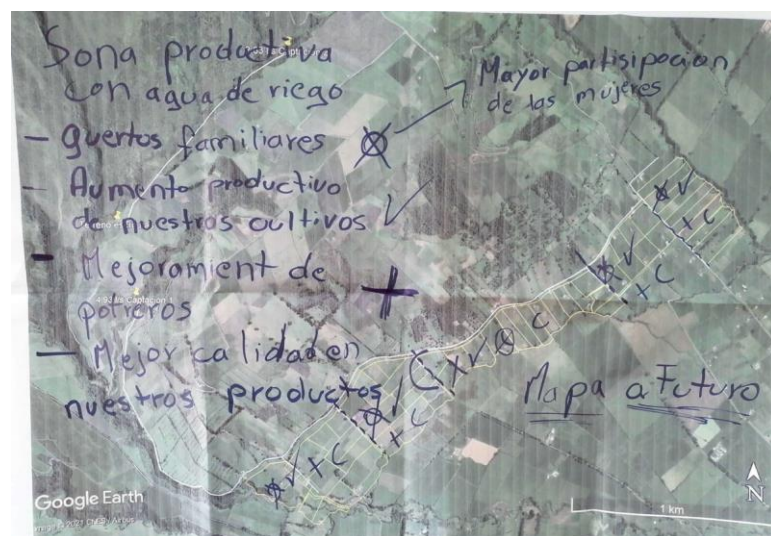 Sona productiva
con agua de riego
- guertos familiares
- Aumento productivo
de nuestros cultivos ✓
- Mejoramient de
potreros +
- Mejor calidad en
nuestros productos C
Mayor partisipacion
de las mujeres
Mapa a Futuro
✓
+ C
✓
+ C
C X ✓ C
✓
+ C
✓ + C
Google Earth
N
1 km